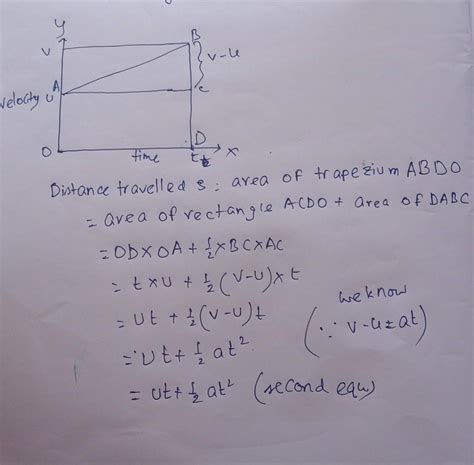 y
V
B
V-u
A
u
velocity
c
O
time
D
t
x
Distance travelled s: area of trapezium ABDO
= area of rectangle ACDO + area of DABC
= OD×OA + 1/2 × BC × AC
= t×u + 1/2 (V-u)×t
= ut + 1/2 (v-u)t
we know
(∵ v-u = at)
= ut + 1/2 at²
= ut + 1/2 at² (second equ)